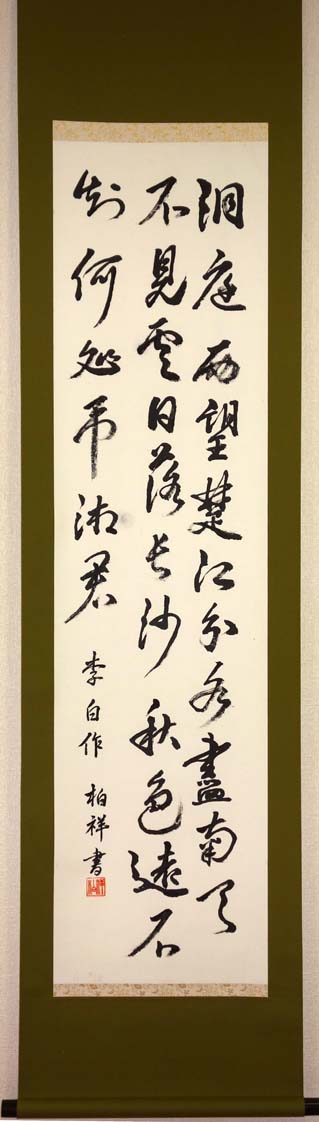 洞庭西望楚江分水盡南天
不見雲日落長沙秋色遠不
知何處弔湘君 李白作 柏祥書